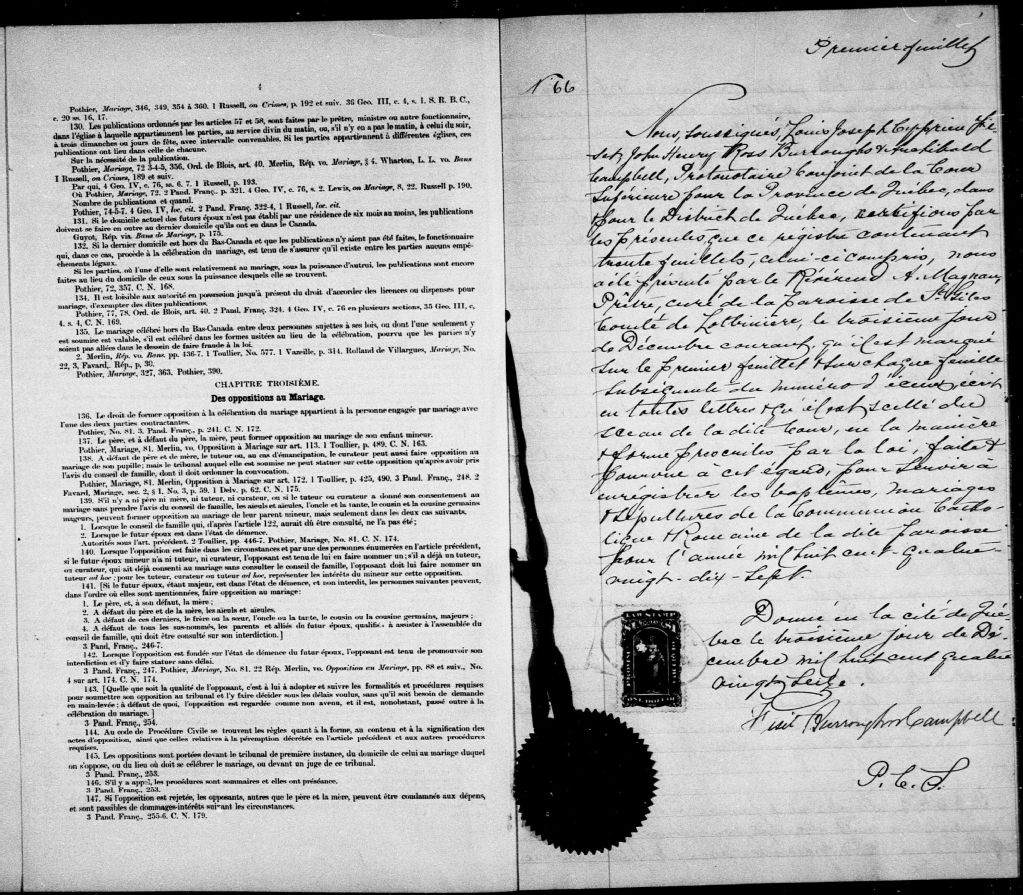 4
Pothier, Mariage, 346, 349, 354 à 360. 1 Russell, on Crimes, p. 192 et suiv. 36 Geo. III, c. 4, s. 1. S. R. B. C.,
c. 20 ss. 16, 17.
130. Les publications ordonnés par les articles 57 et 58, sont faites par le prêtre, ministre ou autre fonctionnaire,
dans l'église à laquelle appartiennent les parties, au service divin du matin, ou, s'il n'y en a pas le matin, à celui du soir,
à trois dimanches ou jours de fête, avec intervalle convenables. Si les parties appartiennent à différentes églises, ces
publications ont lieu dans celle de chacune.
Sur la nécessité de la publication.
Pothier, Mariage, 72 3-4-5, 356, Ord. de Blois, art. 40. Merlin, Rép. vo. Mariage, § 4. Wharton, L. L. vo. Bans
I Russell, on Crimes, 189 et suiv.
Par qui, 4 Geo. IV, c. 76, ss. 6, 7. 1 Russell, p. 193.
Où Pothier, Mariage, 72. 2 Pand. Franç. p. 321. 4 Geo. IV, c. 76, s. 2. Lewis, on Mariage, 8, 22. Russell p. 190.
Nombre de publications et quand.
Pothier, 74-5-7. 4 Geo. IV, loc. cit. 2 Pand. Franç. 322-4, 1 Russell, loc. cit.
131. Si le domicile actuel des futurs époux n'est pas établi par une résidence de six mois au moins, les publications
doivent se faire en outre au dernier domicile qu'ils ont eu dans le Canada.
Guyot, Rép. vis. Bans de Mariage, p. 175.
132. Si le dernier domicile est hors du Bas-Canada et que les publications n'y aient pas été faites, le fonctionnaire
qui, dans ce cas, procède à la célébration du mariage, est tenu de s'assurer qu'il existe entre les parties aucuns empê-
chements légaux.
Si les parties, où l'une d'elle sont relativement au mariage, sous la puissance d'autrui, les publications sont encore
faites au lieu du domicile de ceux sous la puissance desquels elle se trouvent.
Pothier, 72, 357. C. N. 168.
134. Il est loisible aux autorité en possession jusqu'à présent du droit d'accorder des licences ou dispenses pour
mariage, d'exempter des dites publications.
Pothier, 77, 78. Ord. de Blois, art. 40. 2 Pand. Franç. 324. 4 Geo. IV, c. 76 en plusieurs sections, 35 Geo. III, c,
4, s. 4, C. N. 169.
135. Le mariage célébré hors du Bas-Canada entre deux personnes sujettes à ses lois, ou dont l'une seulement y
est soumise est valable, s'il est célébré dans les formes usitées au lieu de la célébration, pourvu que les parties n'y
soient pas allées dans le dessein de faire fraude à la loi.
2. Merlin, Rép. vo. Bans. pp. 436-7. 1 Toullier, No. 577. 1 Vazeille, p. 314. Rolland de Villargues, Mariage, No.
22, 3, Favard, Rép., p. 30.
Pothier, Mariage, 327, 363. Pothier, 390.
CHAPITRE TROISIÈME.
Des oppositions au Mariage.
136. Le droit de former opposition à la célébration du mariage appartient à la personne engagée par mariage avec
l'une des deux parties contractantes.
Pothier, No. 81. 3. Pand. Franç., p. 241. C. N. 172.
137. Le père, et à défaut du père, la mère, peut former opposition au mariage de son enfant mineur.
Pothier, Mariage, 81. Merlin, vo. Opposition à Mariage sur art. 113. 1 Toullier, p. 489. C. N. 163.
138. A défaut de père et de mère, le tuteur ou, au cas d'émancipation, le curateur peut aussi faire opposition au
mariage de son pupille; mais le tribunal auquel elle est soumise ne peut statuer sur cette opposition qu'après avoir pris
l'avis du conseil de famille, dont il doit ordonner la convocation.
Pothier, Mariage, 81. Merlin, Opposition à Mariage sur art. 172. 1 Toullier, p. 425, 490. 3 Pand. Franç., 248. 2
Favard, Mariage, sec. 2, § 1. No. 3, p. 59. 1 Delv. p. 62. C. N. 175.
139. S'il n'y a ni père ni mère, ni tuteur, ni curateur, ou si le tuteur ou curateur a donné son consentement au
mariage sans prendre l'avis du conseil de famille, les aieuls et aieules, l'oncle et la tante, le cousin et la cousine germains
majeurs, peuvent former opposition au mariage de leur parent mineur, mais seulement dans les deux cas suivants.
1. Lorsque le conseil de famille qui, d'après l'article 122, aurait dû être consulté, ne l'a pas été;
2. Lorsque le futur époux est dans l'état de démence.
Autorités sous l'art. précédent. 2 Toullier, pp. 446-7. Pothier, Mariage, No. 81. C. N. 174.
140. Lorsque l'opposition est faite dans les circonstances et par une des personnes énumérées en l'article précédent,
si le futur époux mineur n'a ni tuteur, ni curateur, l'opposant est tenu de lui en faire nommer un; s'il a déjà un tuteur,
ou curateur, qui ait déjà consenti au mariage sans consulter le conseil de famille, l'opposant doit lui faire nommer un
tuteur ad hoc; pour les tuteur, curateur ou tuteur ad hoc, représenter les intérêts du mineur sur cette opposition.
141. [Si le futur époux, étant majeur, est dans l'état de démence, et non interdit, les personnes suivantes peuvent,
dans l'ordre où elles sont mentionnées, faire opposition au mariage:
1. Le père, et, à son défaut, la mère;
2. A défaut du père et de la mère, les aieuls et aieules,
3. A défaut de ces derniers, le frère ou la sœur, l'oncle ou la tante, le cousin ou la cousine germains, majeurs;
4. A défaut de tous les sus-nommés, les parents et alliés du futur époux, qualifiés à assister à l'assemblée du
conseil de famille, qui doit être consulté sur son interdiction.]
3 Pand. Franç., 246-7.
142. Lorsque l'opposition est fondée sur l'état de démence du futur époux, l'opposant est tenu de promouvoir son
interdiction et d'y faire statuer sans délai.
3 Pand. Franç., 247. Pothier, Mariage, No. 81. 22 Rép. Merlin, vo. Opposition en Mariage, pp. 88 et suiv., No.
4 sur art. 174. C. N. 174.
143. [Quelle que soit la qualité de l'opposant, c'est à lui à adopter et suivre les formalités et procédures requises
pour soumettre son opposition au tribunal et l'y faire décider sous les délais voulus, sans qu'il soit besoin de demande
en main-levée; à défaut de quoi, l'opposition est regardée comme non avenu, et il est, nonobstant, passé outre à la
célébration du mariage.]
3 Pand. Franç., 254.
144. Au code de Procédure Civile se trouvent les règles quant à la forme, au contenu et à la signification des
actes d'opposition, ainsi que celles relatives à la péremption décrétée en l'article précédent et aux autres procédures
requises.
145. Les oppositions sont portées devant le tribunal de première instance, du domicile de celui au mariage duquel
on s'oppose, ou du lieu où doit se célébrer le mariage, ou devant un juge de ce tribunal.
3 Pand. Franç., 253.
146. S'il y a appel, les procédures sont sommaires et elles ont préséance.
3 Pand. Franç., 253.
147. Si l'opposition est rejetée, les opposants, autres que le père et la mère, peuvent être condamnés aux dépens,
et sont passibles de dommages-intérêts suivant les circonstances.
3 Pand. Franç., 255-6. C. N. 179.
Premier feuillet
No 66
Nous, soussignés, Louis Joseph Cyprien Fi-
set, John Henry Ross Burroughs & Archibald
Campbell, Protonotaire Conjoint de la Cour
Supérieure pour la Province de Québec, dans
& pour le District de Québec, certifions par
les présentes que ce registre contenant
trente feuillets, celui-ci compris, nous
a été présenté par le Révérend A. Magnan,
Prêtre, curé de la paroisse de St Giles
Comté de Lotbinière, le troisième jour
de Décembre courant, qu'il est marqué
sur le premier feuillet & sur chaque feuillet
subséquent du numéro d'iceux, écrit
en toutes lettres & qu'il est scellé du
sceau de la dite Cour, en la manière
& forme prescrites par la loi, faite &
pourvue à cet égard, pour servir à
enregistrer les baptêmes, mariages
& sépultures de la Communion Catho-
lique & Romaine de la dite paroisse
pour l'année mil huit cent quatre-
vingt-dix-sept.
Donné en la cité de Qué-
bec le troisième jour de Dé-
cembre mil huit cent quatre
vingt seize.
Fiset Burroughs & Campbell
P. C. S.
LAW STAMP
ONE DOLLAR